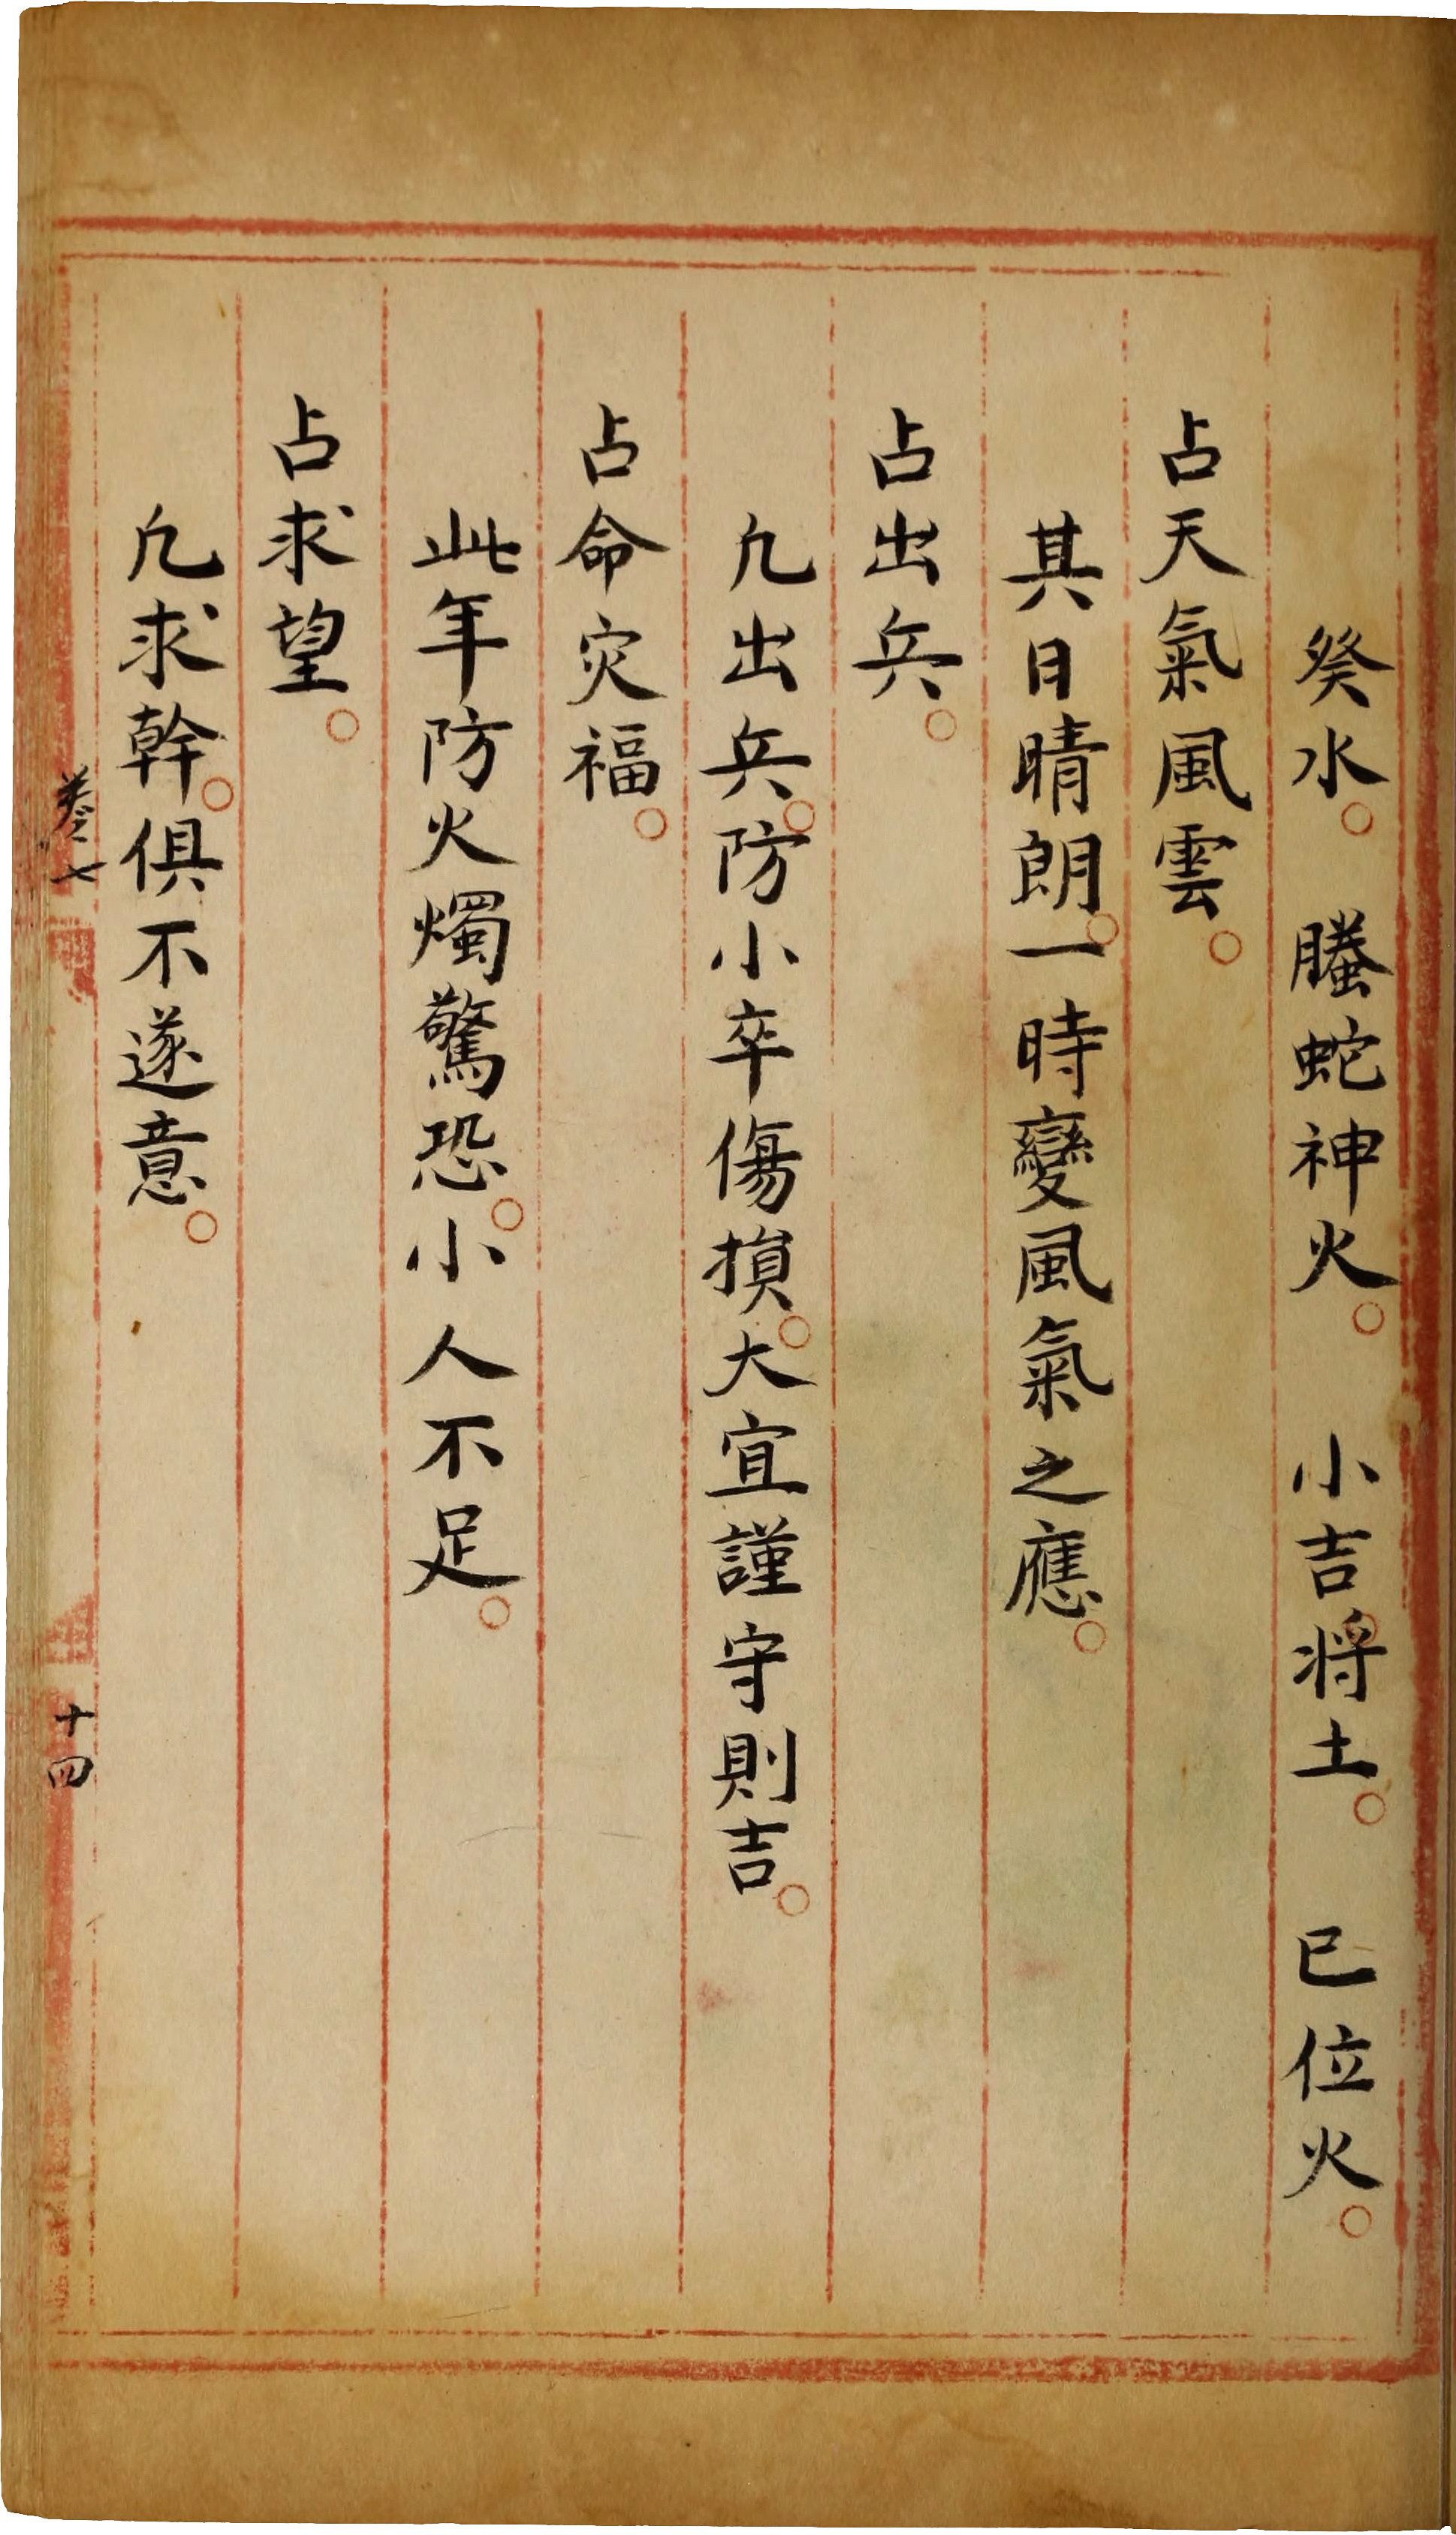 癸水。　螣蛇神火。　小吉将土。　巳位火。
占天氣風雲。
其日晴朗。一時變風氣之應。
占出兵。
凢出兵。防小卒傷損。大宜謹守則吉。
占命灾福。
此年防火燭驚恐。小人不足。
占求望。
凢求幹。俱不遂意。
卷七
十四